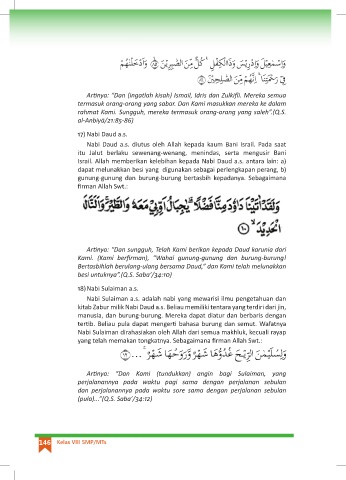 وَإِسْمَٰعِيلَ وَإِدْرِيسَ وَذَا ٱلْكِفْلِ ۖ كُلٌّ مِّنَ ٱلصَّٰبِرِينَ ۝٨٥ وَأَدْخَلْنَٰهُمْ
فِى رَحْمَتِنَآ ۖ إِنَّهُم مِّنَ ٱلصَّٰلِحِينَ ۝٨٦
Artinya: “Dan (ingatlah kisah) Ismail, Idris dan Zulkifli. Mereka semua
termasuk orang-orang yang sabar. Dan Kami masukkan mereka ke dalam
rahmat Kami. Sungguh, mereka termasuk orang-orang yang saleh”.(Q.S.
al-Anbiyā/21:85-86)
17) Nabi Daud a.s.
Nabi Daud a.s. diutus oleh Allah kepada kaum Bani Israil. Pada saat
itu Jalut berlaku sewenang-wenang, menindas, serta mengusir Bani
Israil. Allah memberikan kelebihan kepada Nabi Daud a.s. antara lain: a)
dapat melunakkan besi yang digunakan sebagai perlengkapan perang, b)
gunung-gunung dan burung-burung bertasbih kepadanya. Sebagaimana
firman Allah Swt.:
وَلَقَدْ اٰتَيْنَا دَاوٗدَ مِنَّا فَضْلًاۗ يٰجِبَالُ اَوِّبِيْ مَعَهٗ وَالطَّيْرَ ۚوَاَلَنَّا لَهُ
الْحَدِيْدَۙ ١٠
Artinya: “Dan sungguh, Telah Kami berikan kepada Daud karunia dari
Kami. (Kami berfirman), “Wahai gunung-gunung dan burung-burung!
Bertasbihlah berulang-ulang bersama Daud,” dan Kami telah melunakkan
besi untuknya”.(Q.S. Saba’/34:10)
18) Nabi Sulaiman a.s.
Nabi Sulaiman a.s. adalah nabi yang mewarisi ilmu pengetahuan dan
kitab Zabur milik Nabi Daud a.s. Beliau memiliki tentara yang terdiri dari jin,
manusia, dan burung-burung. Mereka dapat diatur dan berbaris dengan
tertib. Beliau pula dapat mengerti bahasa burung dan semut. Wafatnya
Nabi Sulaiman dirahasiakan oleh Allah dari semua makhluk, kecuali rayap
yang telah memakan tongkatnya. Sebagaimana firman Allah Swt.:
وَلِسُلَيْمَٰنَ ٱلرِّيحَ غُدُوُّهَا شَهْرٌ وَرَوَاحُهَا شَهْرٌ ۖ ... ۝١٢
Artinya: “Dan Kami (tundukkan) angin bagi Sulaiman, yang
perjalanannya pada waktu pagi sama dengan perjalanan sebulan
dan perjalanannya pada waktu sore sama dengan perjalanan sebulan
(pula)...”(Q.S. Saba’/34:12)
146 Kelas VIII SMP/MTs